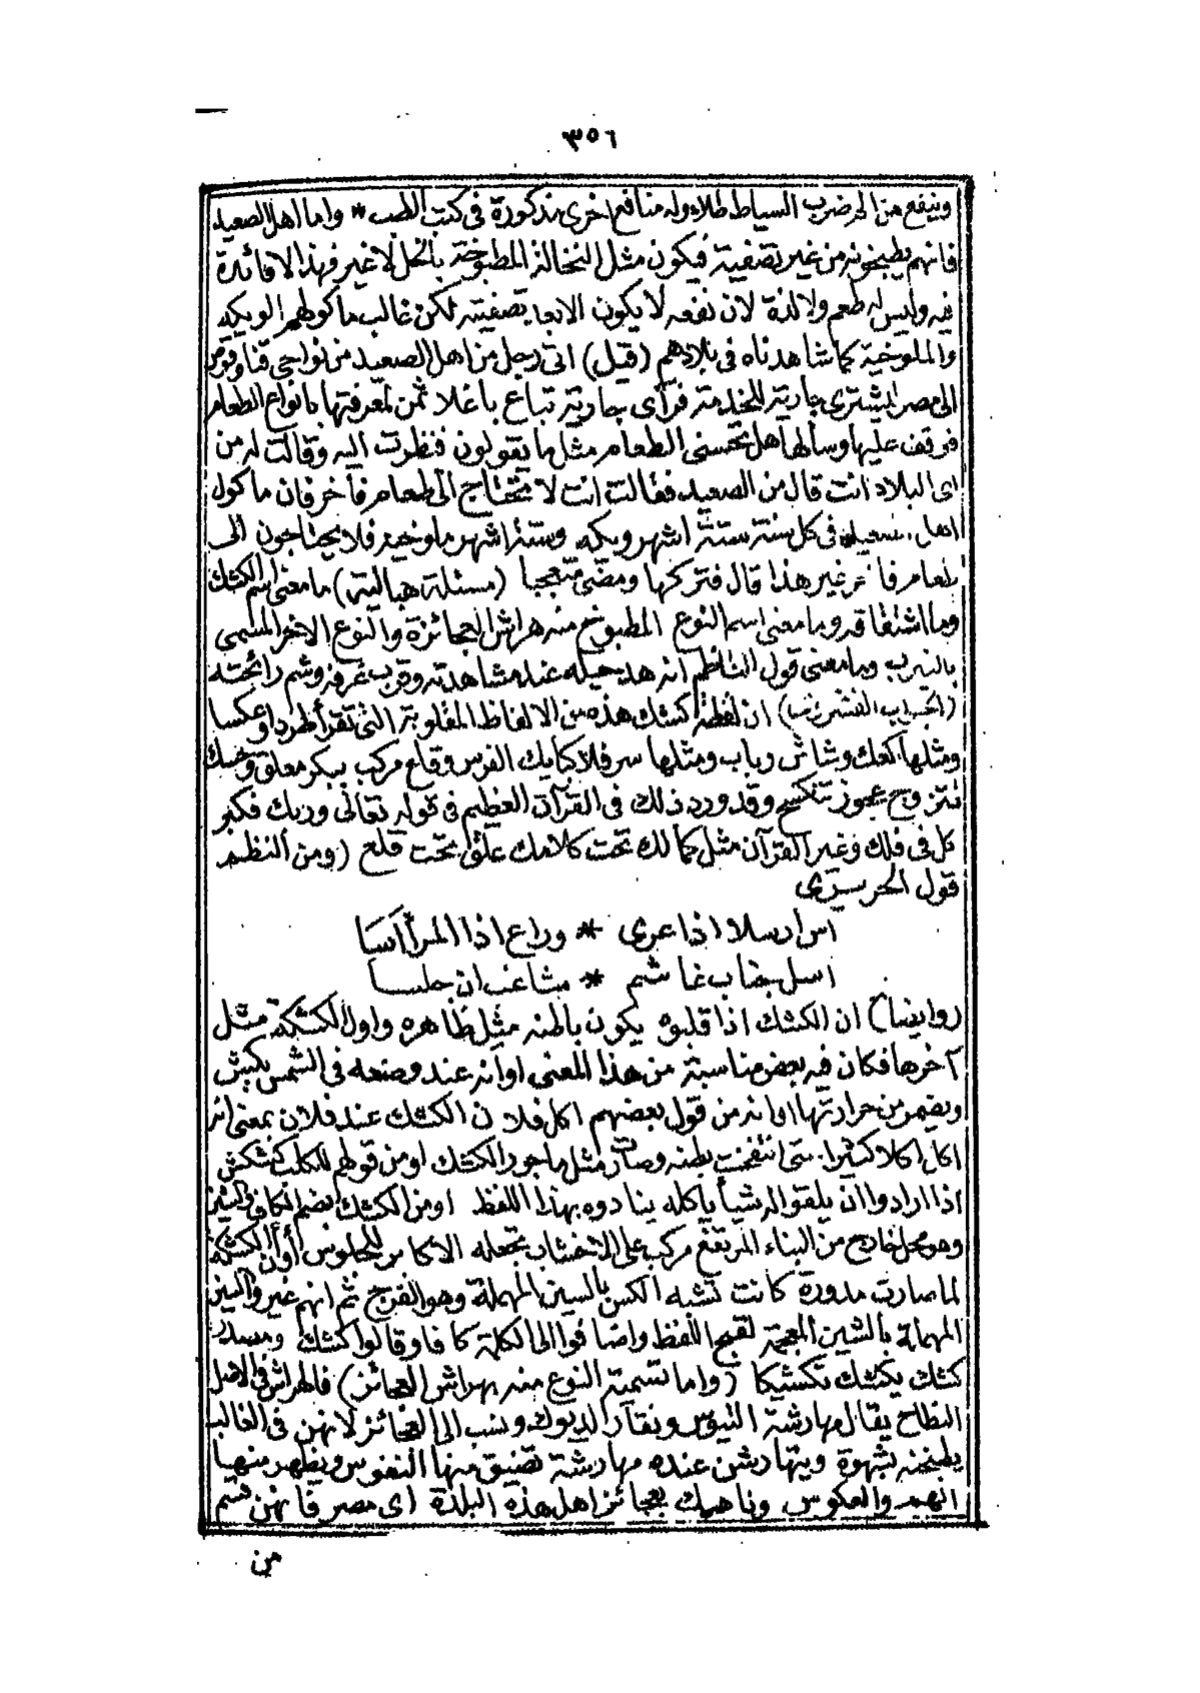 ٣٥٦
وينفع من الم ضرب السياط طلاء وله منافع اخرى مذكورة فى كتب الطب * واما اهل الصعيد
فانهم يطبخونه من غير تصفية فيكون مثل النخالة المطبوخة بالخل لا غير فهذا لا فائدة
فيه وليس له طعم ولا لذة لان نفعه لا يكون الا بعد تصفيته لكن غالب ماكولهم الويكه
والملوخية كما شاهدناه فى بلادهم (قيل) اتى رجل من اهل الصعيد من نواحى قنا وقوص
الى مصر ليشترى جارية للخدمة فرآى جارية تباع باغلا ثمن لمعرفتها بانواع الطعام
فوقف عليها وسألها هل تحسنى الطعام مثل ما يقولون فنظرت اليه وقالت له من
اى البلاد انت قال من الصعيد فقالت انت لا تحتاج الى طعام فآخر فان ماكول
اهل الصعيد فى كل سنة ستة اشهر ويكه وستة اشهر ملوخيه فلا يحتاجون الى
طعام فاخر غير هذا قال فتركها ومضى متعجبا (مسئلة هبالية) ما معنى اسم الكشك
وما اشتقاقه وما معنى اسم النوع المطبوخ منه هراش العجائزة والنوع الاخر المسمى
بالنيرب وما معنى قول الناظم انه هد حيله عند مشاهدته وقرب غرفه وشم رائحته
(الجواب الفشروى) ان لفظة كشك هذه من الالفاظ المقلوبة التى تقرأ طردا وعكسا
ومثلها كعك وشاش وباب ومثلها سر فلا كبابك الفرس وقلع مركب ببكر معلق وحبك
تتزوج عجوز تتكسح وقد ورد ذلك فى القرآن العظيم فى قوله تعالى وربك فكبر
كل فى فلك وغير القرآن مثل كمالك تحت كلامك علق تحت قلع (ومن النظيم
قول الحريرى
اس ارملا اذا عرى * وراع اذا المرأ اسا
اسل جناب غاشم * مشاغب ان جلسا
(وايضا) ان الكشك اذا قلبوه يكون باطنه مثل ظاهره واول الكشكة مثل
آخرها فكان فيه بعض مناسبة من هذا المعنى او انه عند وضعه فى الشمس يكش
ويضمر من حرارتها او انه من قول بعضهم اكل فلان الكشك عند فلان بمعنى انه
اكل اكلا كثيرا حتى انتفخت بطنه وصارت مثل ماجور الكشك او من قولهم للكلب كشكش
اذا ارادوا ان يلقوا له شيأ يأكله ينادوه بهذا اللفظ او من الكشك بضم الكاف
وهو محل خارج من البناء المرتفع مركب على الاخشاب تجعله الاكابر للجلوس او ان الكشكة
لما صارت مدورة كانت تشبه الكس بالسين المهملة وهو الفرج ثم انهم غيروا السين
المهملة بالشين المعجمة لقبح اللفظ واضافوا الى الكلمة كافا وقالوا كشك ومصدره
كشك يكشك تكشيكا (واما تسمية النوع منه بهراش العجائز) فالهراش فى الاصل
النطاح يقال مهارشة التيوس ونقار الديوك ونسب الى العجائز لانهن فى الغالب
يطبخنه بشهوة ويتهارشن عنده مهارشة تضيق منها النفوس ويظهر منها
الهم والعكوس وناهيك بعجائز اهل هذه البلدة اى مصر فانهن قسم
من